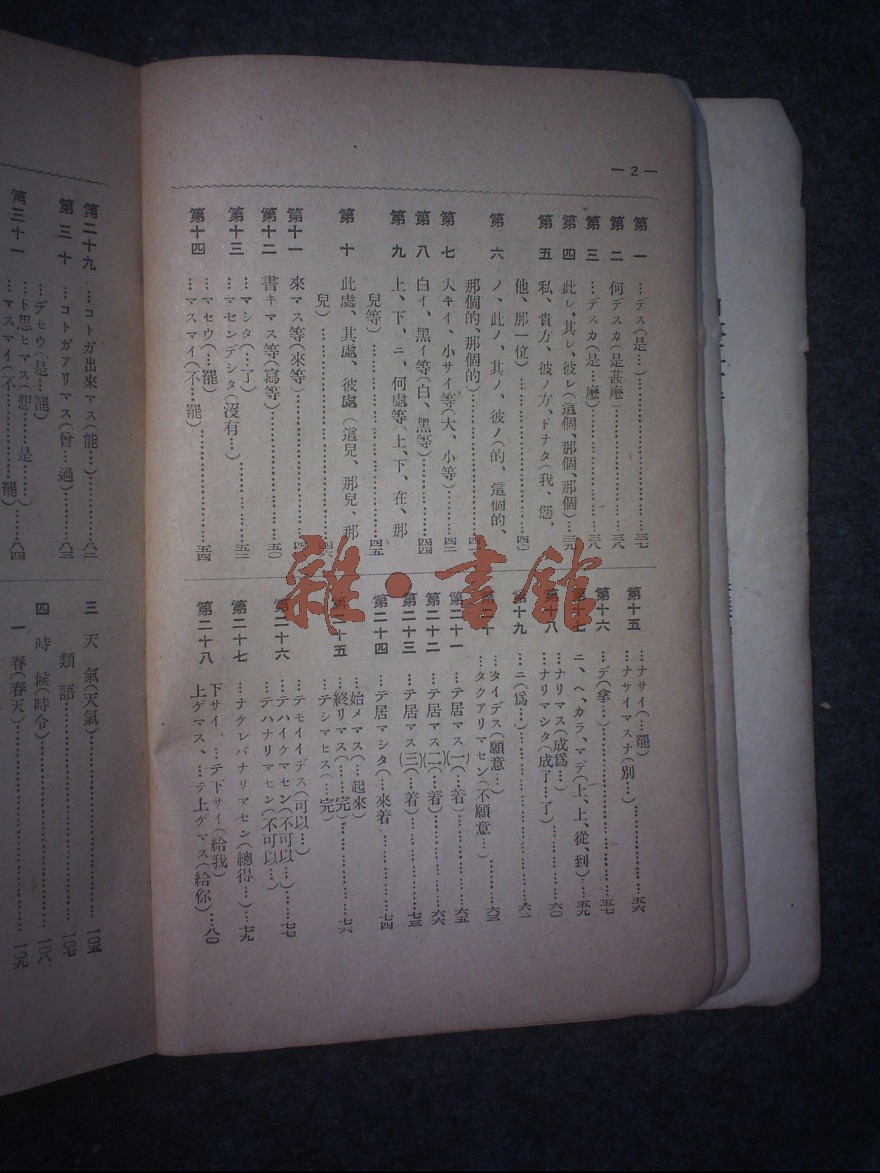 — 2 —
第一 …デス(是…)……………三七
第二 何デスカ(是甚麼)……………三八
第三 …デスカ(是…麼)……………三八
第四 此レ、其レ、彼レ(這個、那個、那個)…三九
第五 私、貴方、彼ノ方、ドナタ(我、您、
他、那一位)……………四〇
第六 ノ、此ノ、其ノ、彼ノ(的、這個的、
那個的、那個的)……………
第七 大キイ、小サイ等(大、小等)……………四三
第八 白イ、黑イ等(白、黑等)……………四四
第九 上、下、ニ、何處等(上、下、在、那
兒等)……………四五
第十 此處、其處、彼處(這兒、那兒、那
兒)……………四六
第十一 來マス等(來等)……………
第十二 書キマス等(寫等)……………五〇
第十三 …マシタ(…了)
…マセンデシタ(沒有…)……………五三
第十四 …マセウ(…罷)
…マスマイ(不…罷)……………五四
第十五 …ナサイ(…罷)
…ナサイマスナ(別…)……………五六
第十六 …デ(拿…)……………五七
第十七 ニ、ヘ、カラ、マデ(上、上、從、到)…五九
第十八 …ナリマス(成爲…)
…ナリマシタ(成了…了)……………六〇
第十九 …ニ(爲…)……………六二
第二十 …タイデス(願意…)
…タクアリマセン(不願意…)……………六三
第二十一 …テ居マス(一)(…着)……………六五
第二十二 …テ居マス(二)(…着)……………六六
第二十三 …テ居マス(三)(…着)……………七三
第二十四 …テ居マシタ(…來着)……………七四
第二十五 …始メマス(…起來)
…終リマス(……完)……………七六
…テシマヒマス(…完)
第二十六 …テモイイデス(可以…)
…テハイケマセン(不可以…)……………七七
…テハナリマセン(不可以…)
第二十七 …ナケレバナリマセン(總得…)…七九
第二十八 下サイ、…テ下サイ(給我)
上ゲマス、…テ上ゲマス(給你)…八〇
第二十九 …コトガ出來マス(能…)……………八二
第三十 …コトガアリマス(曾…過)……………八三
第三十一 …デセウ(是…罷)
…ト思ヒマス(想……是……
…マスマイ(不……………罷)……八四
三 天氣(天氣)……………一〇五
類語……………一〇七
四 時候(時令)……………一〇八
一 春(春天)……………一〇九
雜·書館